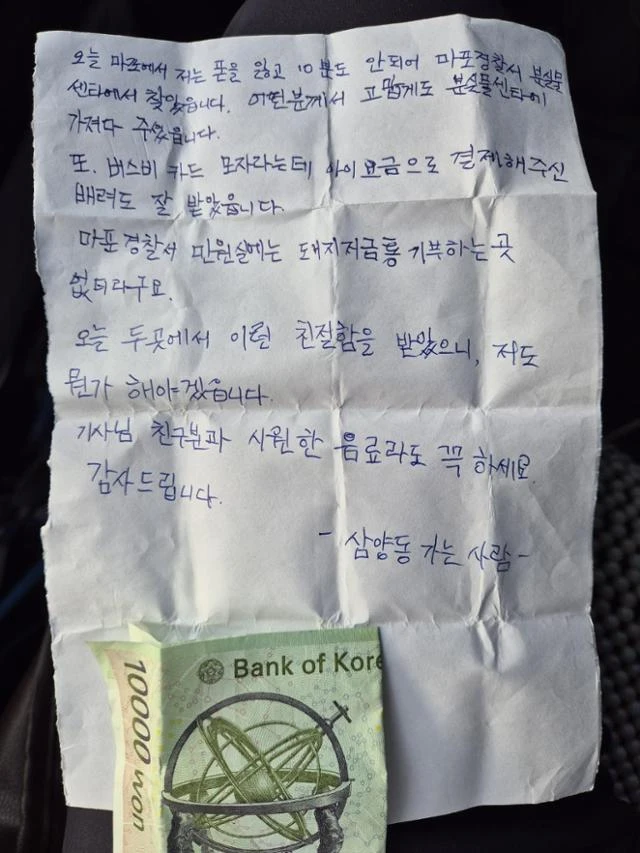 오늘 마포에서 저는 폰을 잃고 10분도 안되어 마포경찰서 분실물
센타에서 찾았습니다. 어떤분께서 고맙게도 분실물센타에
가져다 주었습니다.
또. 버스비 카드 모자라는데 아이요금으로 결제해주신
배려도 잘 받았습니다.
마포경찰서 민원실에는 돼지저금통 기부하는 곳
없더라구요.
오늘 두곳에서 이런 친절함을 받았으니, 저도
뭔가 해야겠습니다.
기사님 친구분과 시원한 음료라도 꼭 하세요.
감사드립니다.
- 삼양동 가는 사람 -
Bank of Kore
10000 won